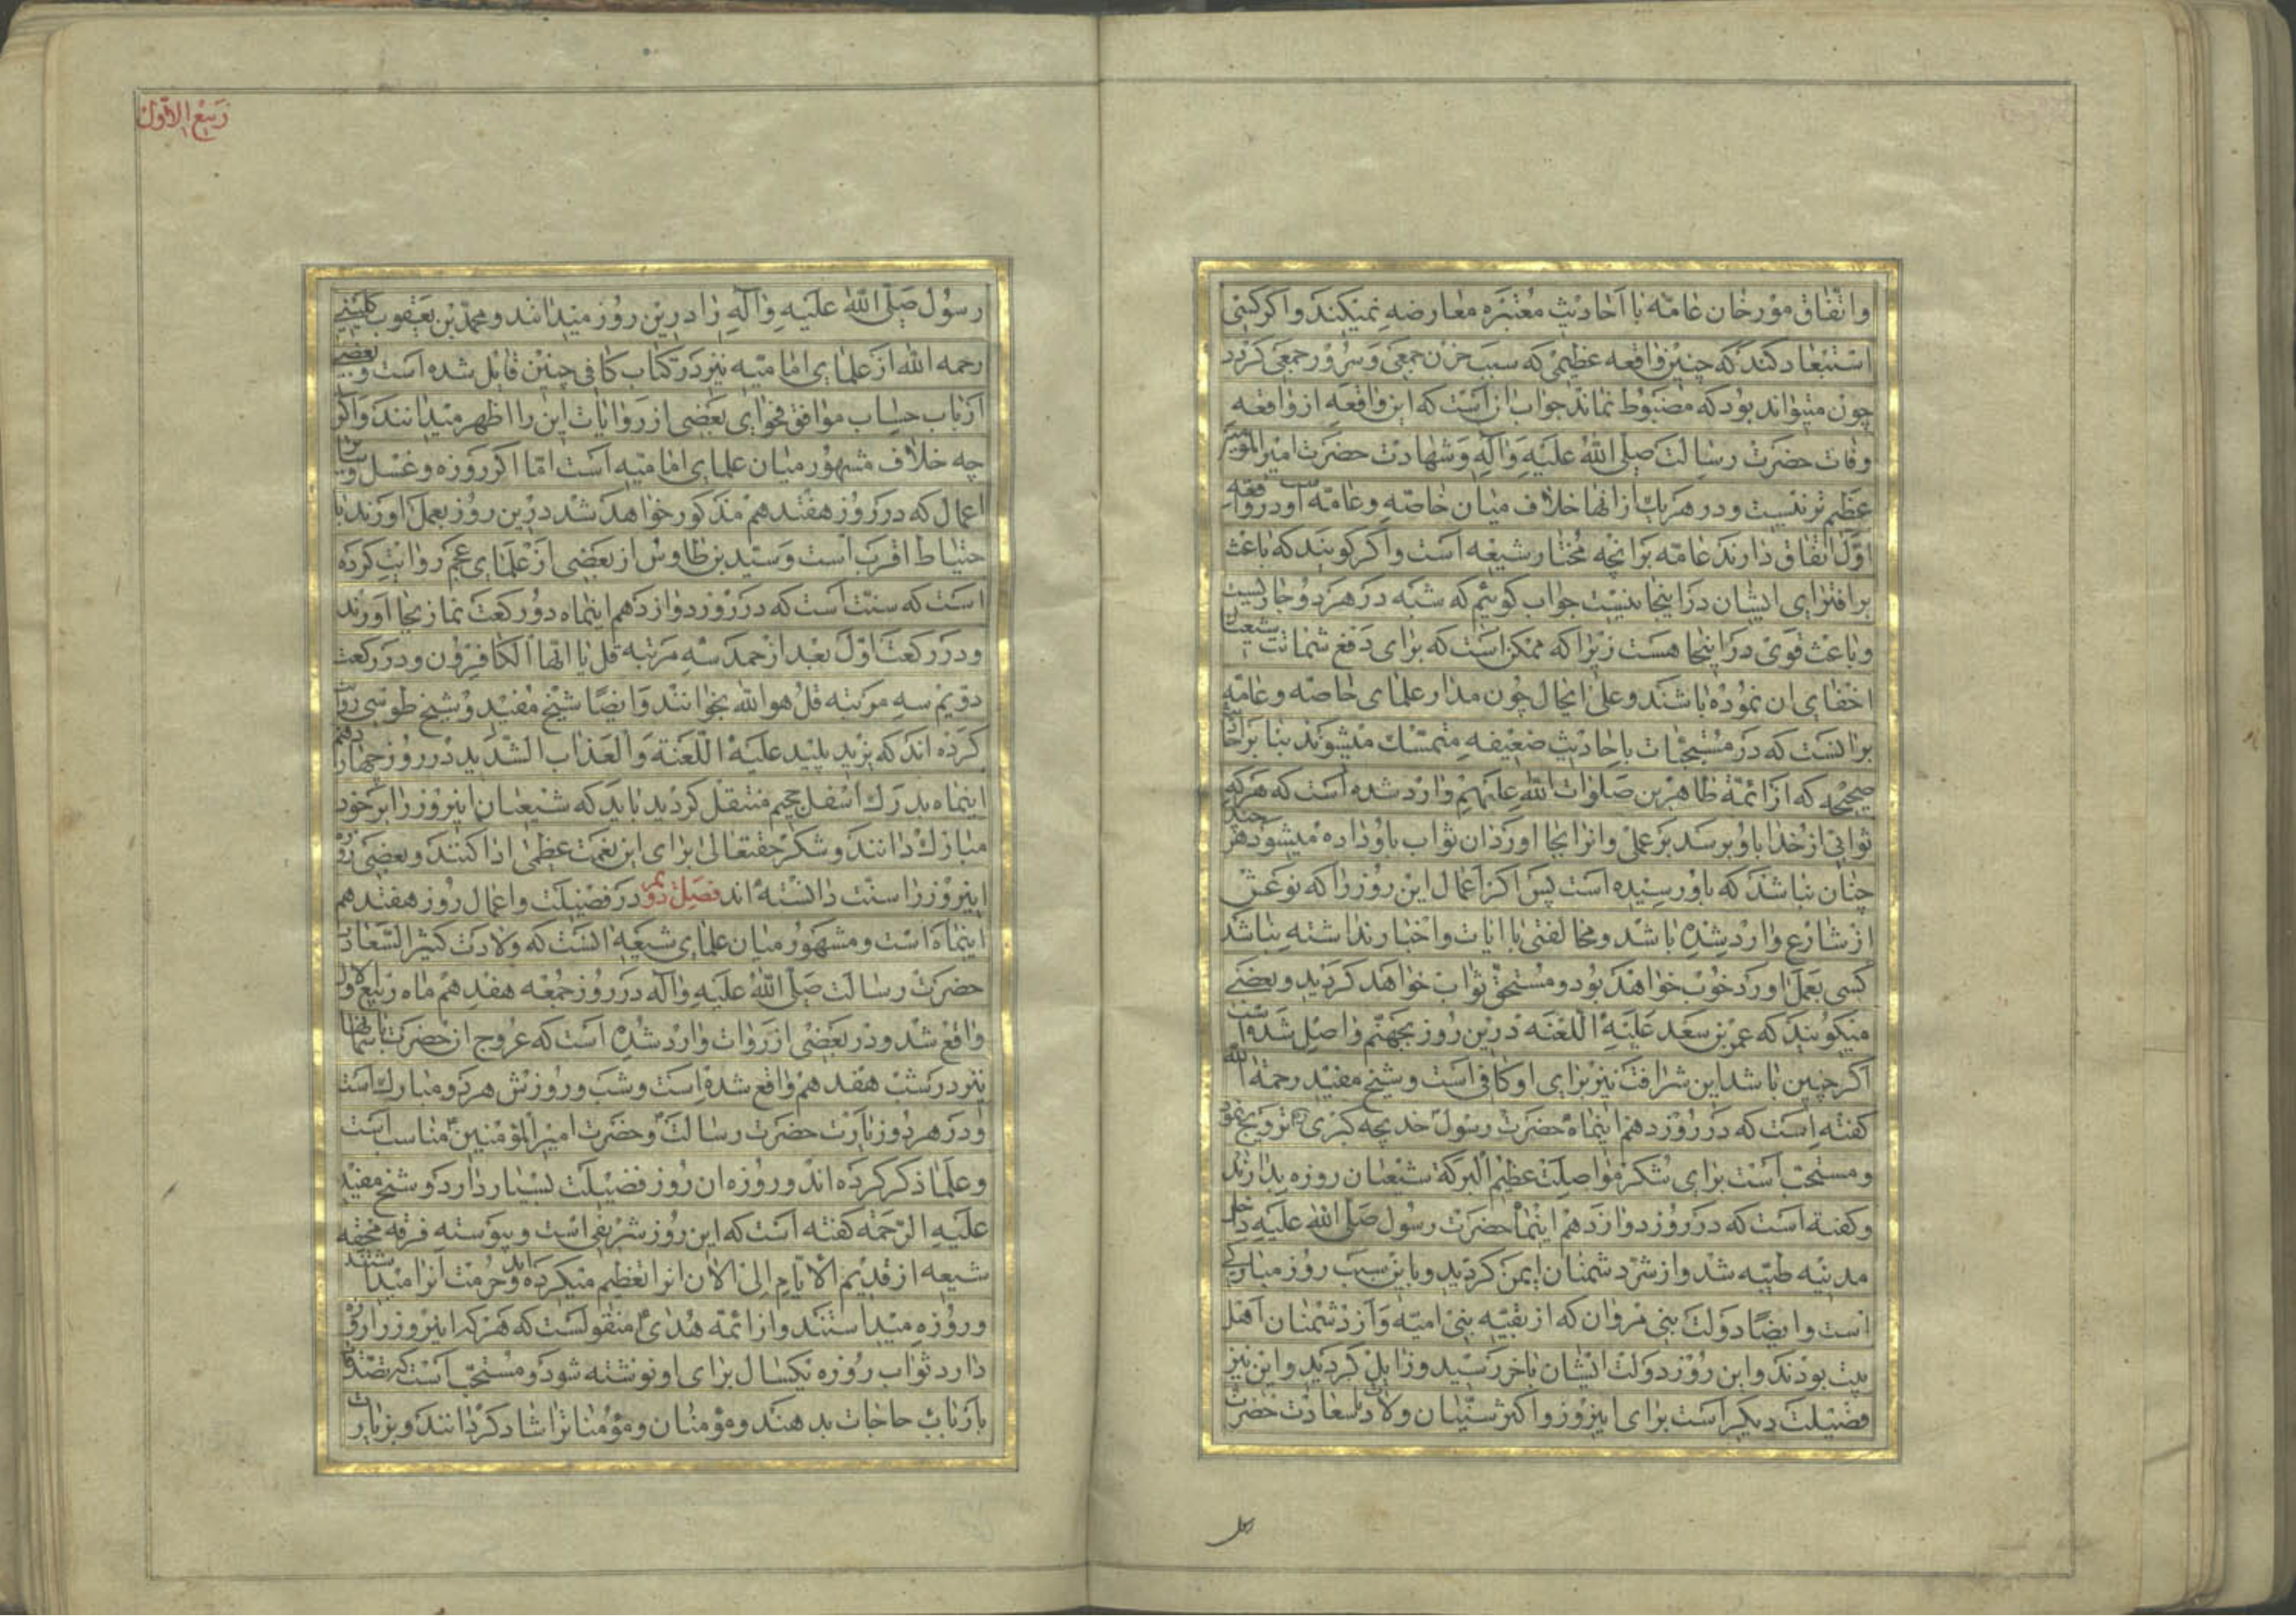 واتّفاق مؤرخان عامّه با احاديث معتبره معارضه نميكند واكر كسى
استبعاد كند كه چنين واقعه عظيمى كه سبب حزن جمعى وسرور جمعى كردد
چون ميتواند بود كه مضبوط نماند جواب آن است كه اين واقعه از واقعه
وفات حضرت رسالت صلى الله عليه واله وشهادت حضرت امير المؤمنين
عظيم تر نيست ودر هر يك از انها خلاف ميان خاصّه وعامّه است ودر واقعه
اوّل اتفاق دارند عامّه بر انچه مختار شيعه است واكر كويند كه باعث
بر افتراى ايشان در اينجا نيست جواب كوئيم كه شبه در هر دو جا نيست
وباعث قوى در اينجا هست زيرا كه ممكن است كه براى دفع شماتت شيعيان
اخفاى ان نموده باشند وعلى ايحال چون مدار علماى خاصّه وعامّه
برانست كه در مستحبّات باحاديث ضعيفه متمسّك ميشوند بنا بر احاديث
صحيحه كه از ائمّه طاهرين صلوات الله عليهم وارد شده است كه هركه
ثوابى از خدا باو برسد بر عملى وانرا بجا اورد ان ثواب باو داده ميشود هر چند
چنان نباشد كه باو رسيده است پس اكر اعمال اين روز را كه نوعش
از شارع وارد شده باشد ومخالفتى با ايات واخبار نداشته باشد
كسى بعمل اورد خوب خواهد بود ومستحقّ ثواب خواهد كرديد وبعضى
ميكويند كه عمر بن سعد عليه اللّعنه درين روز بجهنّم واصل شده است
اكر چنين باشد اين شرافت نيز براى او كافى است وشيخ مفيد رحمة الله
كفته است كه در روز دهم اينماه حضرت رسول خديجه كبرى تزويج نمود
ومستحبّ است براى شكر مواصلت عظيم البركة شيعيان روزه بدارند
وكفته است كه در روز دوازدهم اينماه حضرت رسول صلى الله عليه داخل
مدينه طيّبه شد واز شرّ دشمنان ايمن كرديد وباين سبب روز مباركى
است وايضًا دولت بنى مروان كه از بقيّه بنى اميّه واز دشمنان اهل
بيت بودند واين روز دولت ايشان باخر رسيد وزايل كرديد واين نيز
فضيلت ديكر است براى اينروز واكثر سنّيان ولادت با سعادت حضرت
ربيع الاوّل
رسول صلّى الله عليه واله را درين روز ميدانند ومحمّد بن يعقوب كلينى
رحمه الله از علماى اماميّه نيز در كتاب كافى چنين قايل شده است وبعضى
ارباب حساب موافق فحواى بعضى از روايات اين را اظهر ميدانند واكر
چه خلاف مشهور ميان علماى اماميّه است امّا اكر روزه وغسل وسائر
اعمال كه در روز هفتدهم مذكور خواهد شد درين روز بعمل اورند با
حتياط اقرب است وسيّد بن طاوس از بعضى از علماى عجم روايت كرده
است كه سنّت است كه در روز دوازدهم اينماه دو ركعت نماز بجا اورند
ودر ركعت اوّل بعد از حمد سه مرتبه قل يا ايّها الكافرون ودر ركعت
دويم سه مرتبه قل هو الله بخوانند وايضًا شيخ مفيد وشيخ طوسى روايت
كرده اند كه يزيد پليد عليه اللّعنة والعذاب الشّديد در روز چهاردهم
اينماه بدرك اسفل جحيم منتقل كرديد بايد كه شيعيان اينروز را بر خود
مبارك دانند وشكر حقتعالى براى اين نعمت عظمى ادا كنند وبعضى روزه
اينروز را سنّت دانسته اند فصل دويم در فضيلت واعمال روز هفتدهم
اينماه است ومشهور ميان علماى شيعه انست كه ولادت كثير السّعادت
حضرت رسالت صلّى الله عليه واله در روز جمعه هفدهم ماه ربيع الاول
واقع شد ودر بعضى از روات وارد شده است كه عروج ان حضرت باسمانها
نيز در شب هفدهم واقع شده است وشب وروزش هر دو مبارك است
ودر هر دو زيارت حضرت رسالت وحضرت امير المؤمنين مناسب است
وعلما ذكر كرده اند وروزه ان روز فضيلت بسيار دارد وشيخ مفيد
عليه الرّحمه كفته است كه اين روز شريفى است وپيوسته فرقه محقّه
شيعه از قديم الايّام الى الان انرا تعظيم ميكرده اند وحرمت انرا ميدانستند
وروزه ميداشتند واز ائمّه هدى منقولست كه هركه اينروز را روزه
دارد ثواب روزه يكسال براى او نوشته شود ومستحبّ است كه تصدقات
بارباب حاجات بدهند ومؤمنان ومؤمنانرا شاد كردانند وبزيارت